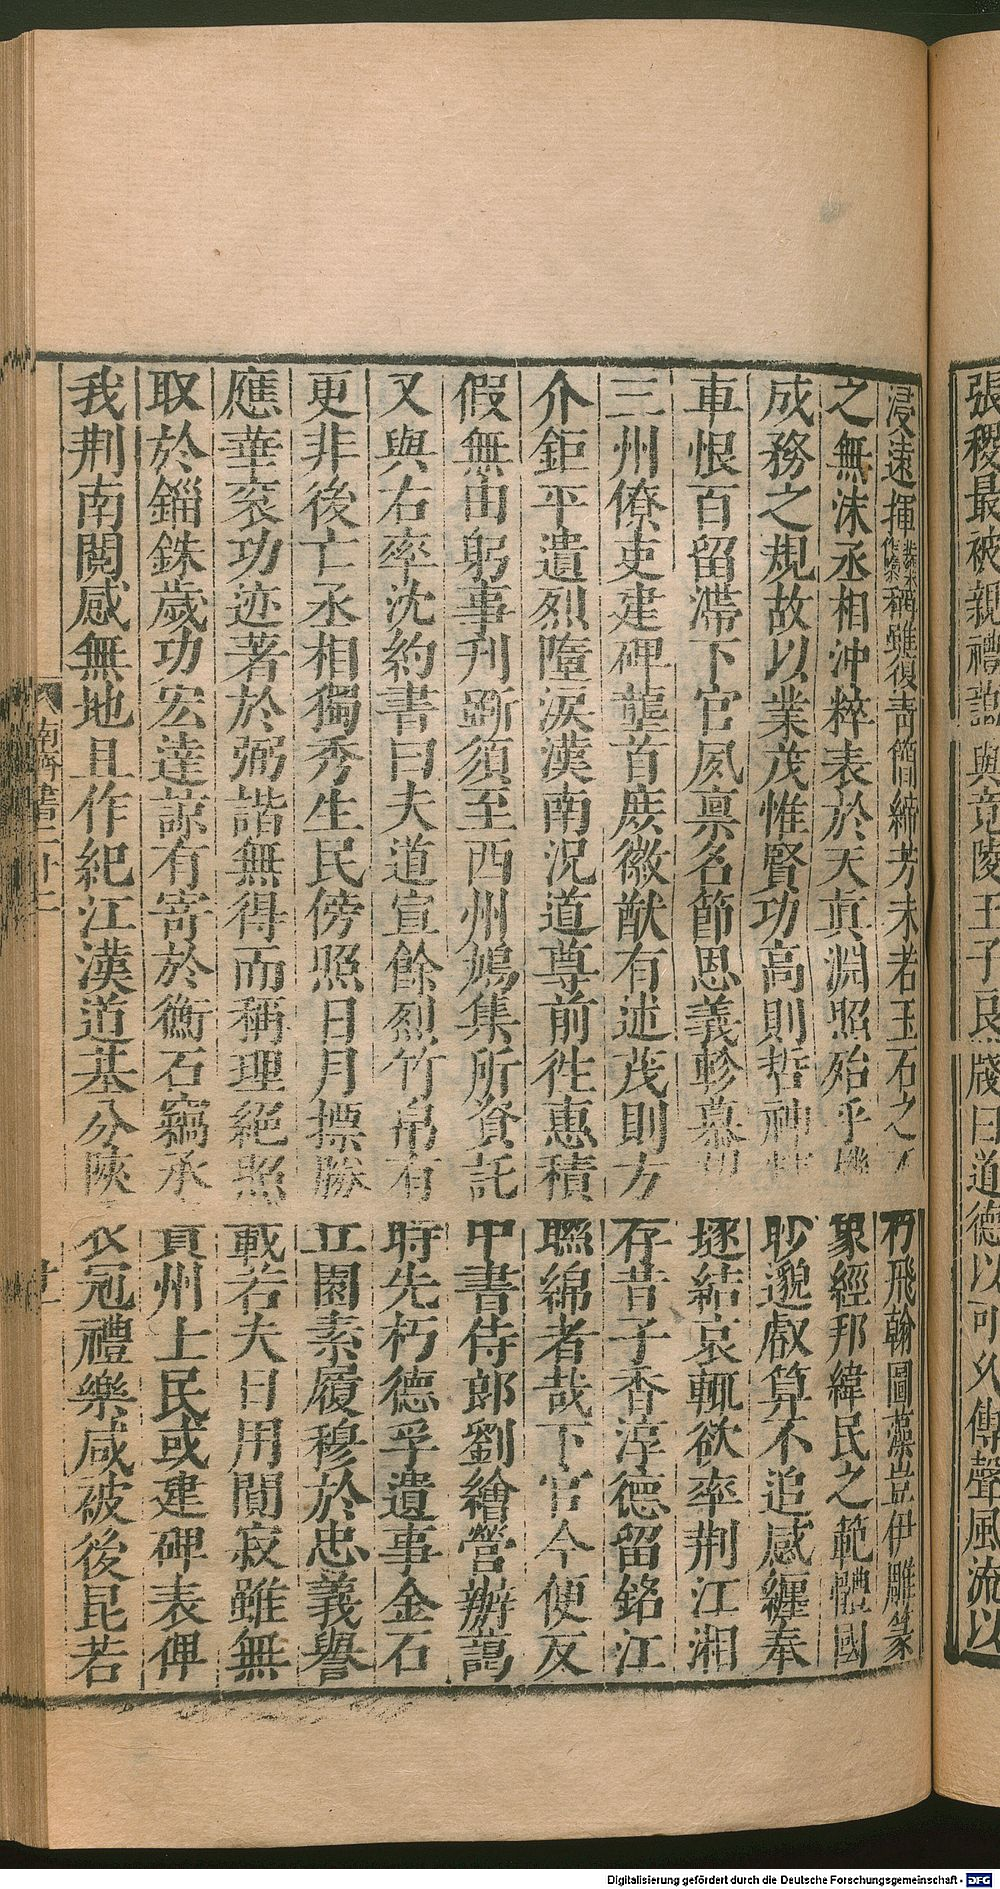 張稷最被親禮藹與竟陵王子良牋曰道德以可久傳聲風流以
浸遠揮稱雖復青簡締芳未若玉石之不朽飛翰圖藻豈伊雕篆
之無沬丞相沖粹表於天真淵照殆乎機象經邦緯民之範體國
成務之規故以業茂惟賢功高則哲神輝眇邈叡算不追感纏奉
車恨百留滯下官夙稟名節恩義軫慕望墜結哀輒欲率荊江湘
三州僚吏建碑壟首庶徽猷有述茂則方存昔子香淳德留銘江
介鉅平遺烈墮淚漢南況道尊前往惠積聯綿者哉下官今便反
假無由躬事刊斲須至西州鳩集所資託中書侍郎劉繪營辦藹
又與右率沈約書曰夫道宣餘烈竹帛有時先朽德孚遺事金石
更非後亡丞相獨秀生民傍照日月摽勝丘園素履穆於忠義譽
應華袞功迹著於弼諧無得而稱理絕照載若夫日用閴寂雖無
取於錙銖歲功宏達諒有寄於衡石竊承貴州士民或建碑表俾
我荊南閱感無地且作紀江漢道基分陝衣冠禮樂咸被後昆若
南齊書二十二
Digitalisierung gefördert durch die Deutsche Forschungsgemeinschaft - DFG